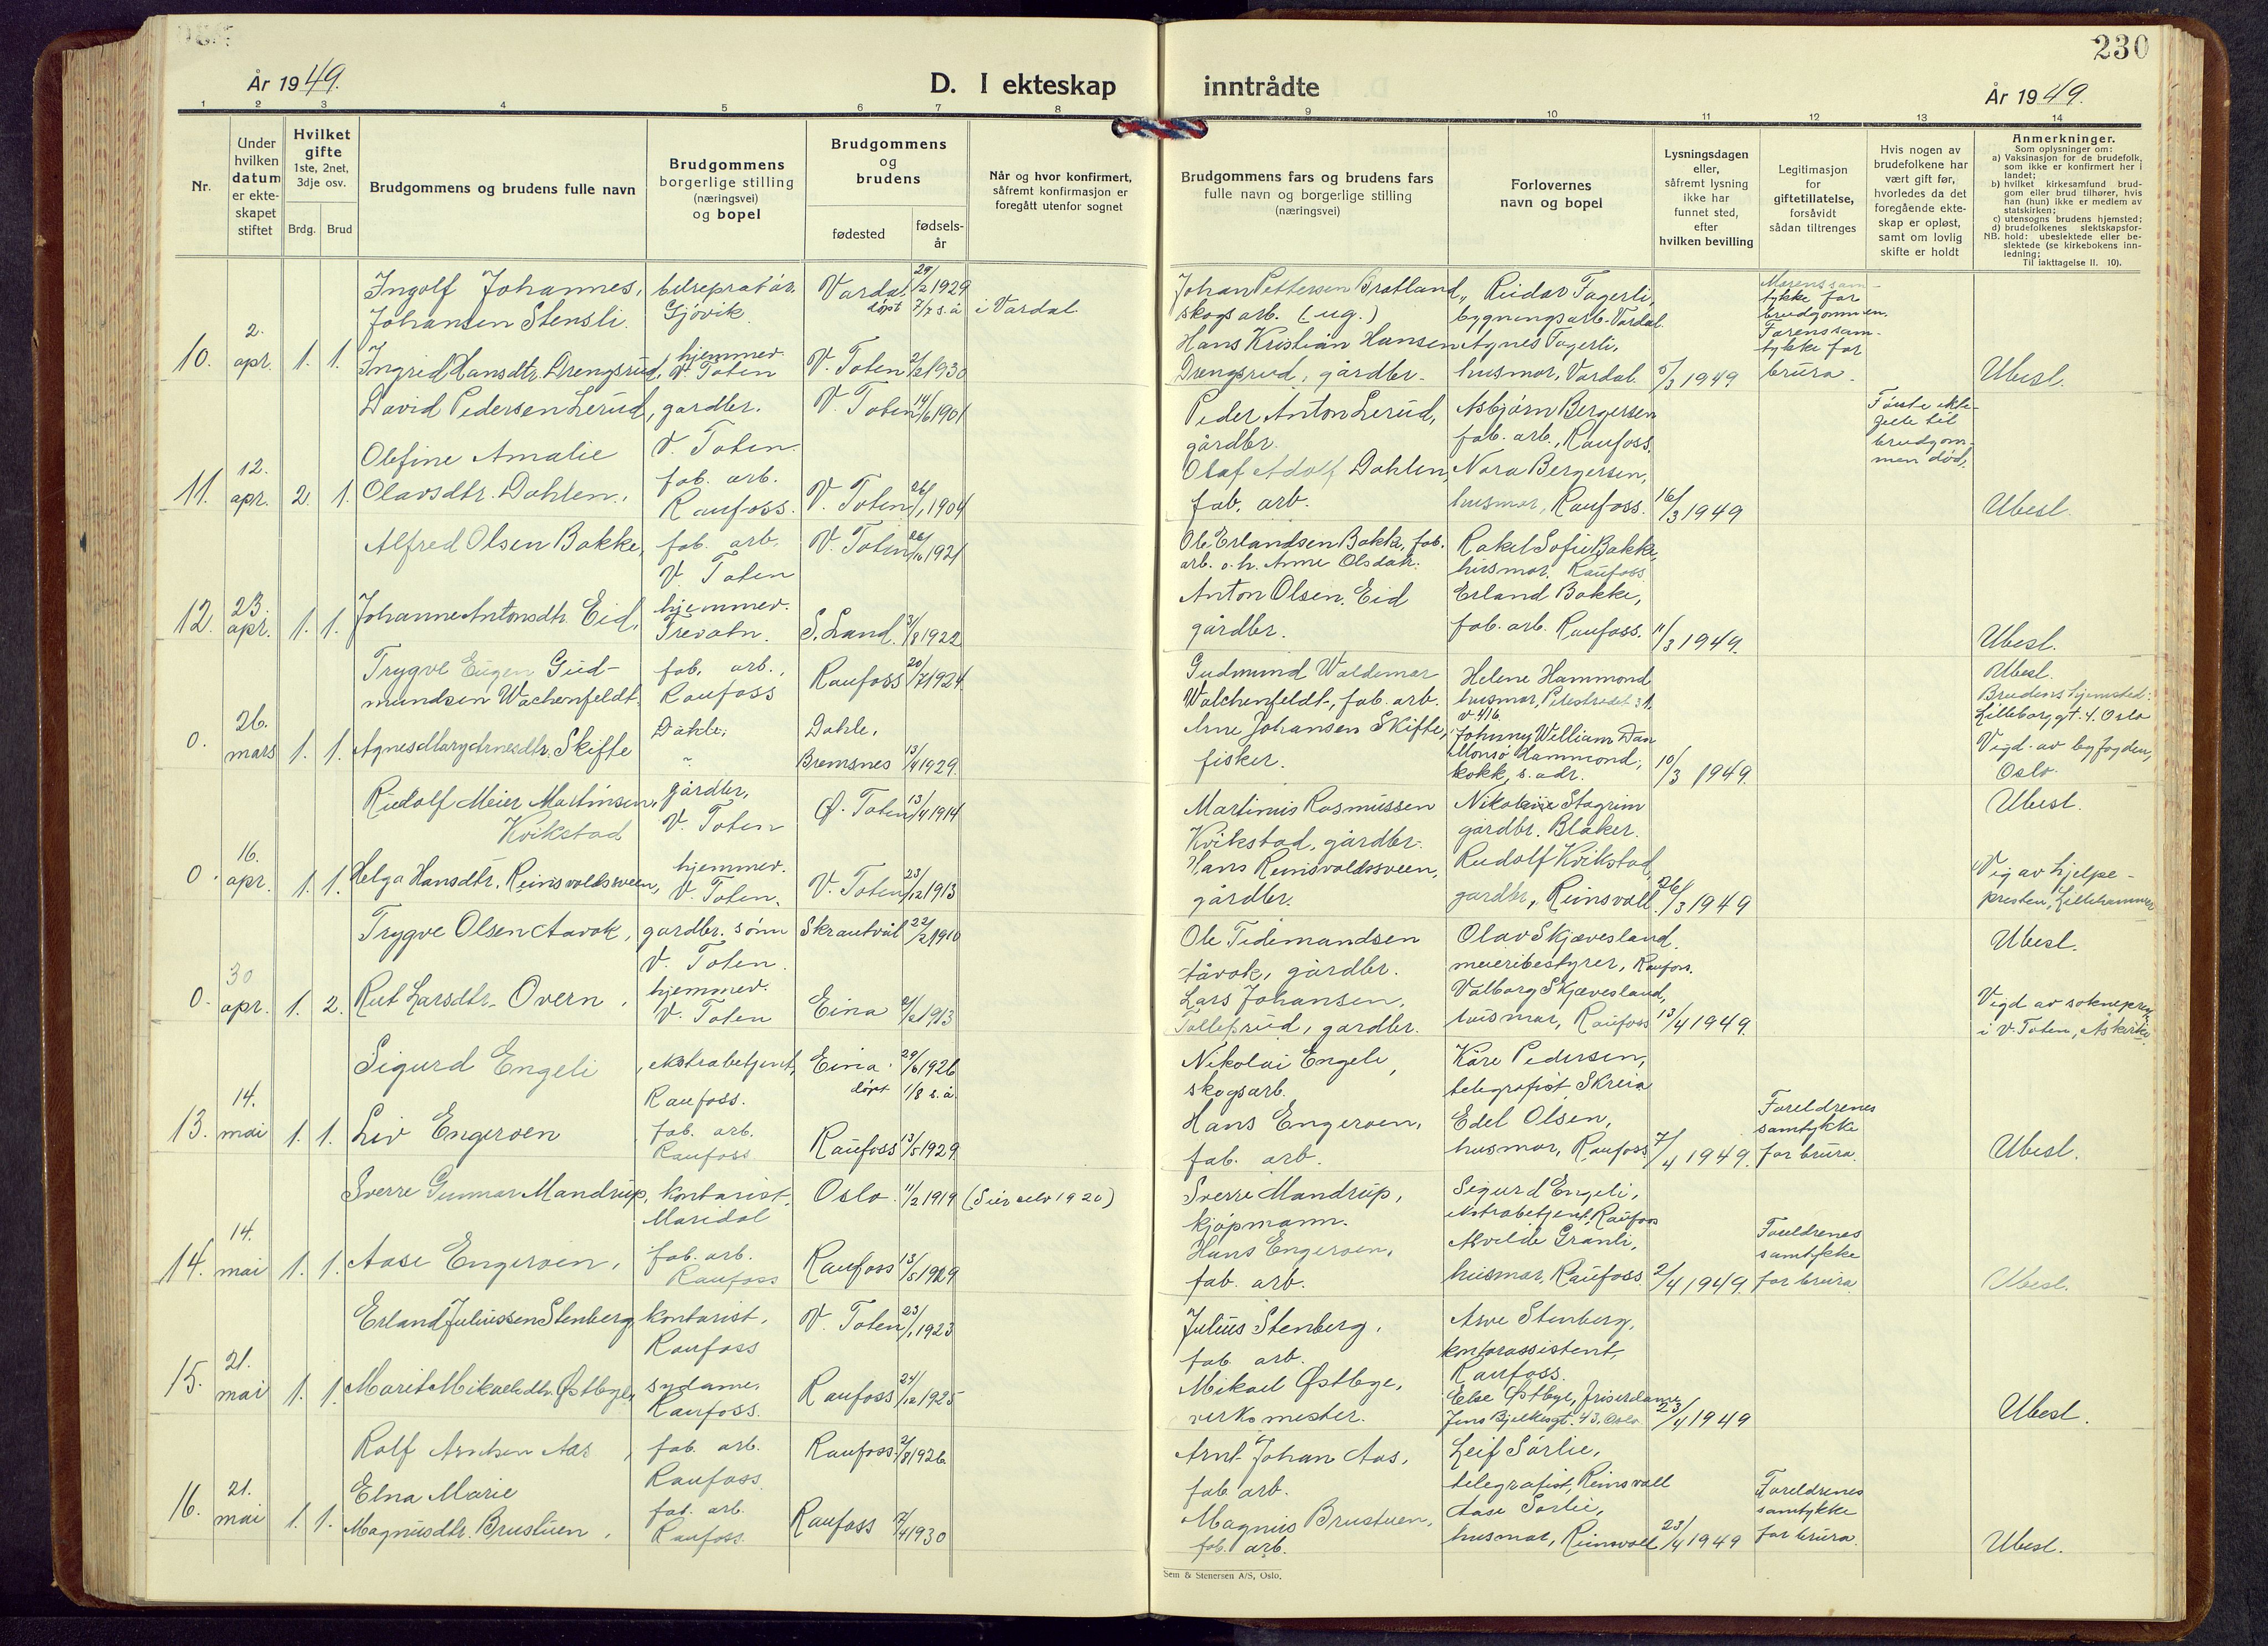 230
År 1949.
D. I ekteskap inntrådte
År 1949.
1 2 3 4 5 6 7 8 9 10 11 12 13 14
Nr.
Under hvilken datum er ekteskapet stiftet
Hvilket gifte 1ste, 2net, 3dje osv.
Brdg. Brud
Brudgommens og brudens fulle navn
Brudgommens borgerlige stilling (næringsvei) og bopel
Brudgommens og brudens
fødested
fødselsår
Når og hvor konfirmert, såfremt konfirmasjon er foregått utenfor sognet
Brudgommens fars og brudens fars fulle navn og borgerlige stilling (næringsvei)
Forlovernes navn og bopel
Lysningsdagen eller, såfremt lysning ikke har funnet sted, efter hvilken bevilling
Legitimasjon for giftetillatelse, forsåvidt sådan tiltrenges
Hvis nogen av brudefolkene har vært gift før, hvorledes da det foregående ekteskap er opløst, samt om lovlig skifte er holdt
Anmerkninger.
Som oplysninger om:
a) Vaksinasjon for de brudefolk, som ikke er konfirmert her i landet;
b) hvilket kirkesamfund brudgom eller brud tilhører, hvis han (hun) ikke er medlem av statskirken;
c) utensogns brudens hjemsted;
d) brudefolkenes slektskapsforhold: ubeslektede eller beslektede (se kirkebokens innledning;
NB. Til iakttagelse II. 10).
10. 2. apr. 1. 1.
Ingolf Johannes, Johansen Stensli.
bilreparatør. Gjøvik
Vardal, døpt 29/2 1929 7/7 s.å i Vardal.
Ingrid Hansdtr. Drengsrud,
hjemmev. V. Toten
V. Toten 2/2 1930
Johan Pettersen Bratland, skogsarb. (ug.)
Hans Kristian Hansen Drengsrud, gårdbr.
Reidar Fagerli, bygningsarb. Vardal.
Agnes Fagerli, husmor, Vardal.
5/3 1949
Morens samtykke for brudgommen.
Farens samtykke for brura.
Ubesl.
11. 12. apr. 2. 1.
David Pedersen Lerud, gardbr. V. Toten.
V. Toten 14/6 1901
Olefine Amalie Olavsdtr. Dahlen,
fab. arb. Raufoss.
V. Toten 26/1 1904
Peder Anton Lerud, gårdbr.
Olaf Adolf Dahlen, fab. arb.
Asbjørn Bergersen fab. arb., Raufoss.
Nora Bergersen, husmor, Raufoss.
16/3 1949
Første ektegelle til brudgommen død.
Ubesl.
12. 23. apr. 1. 1.
Alfred Olsen Bakke, fab. arb. V. Toten
V. Toten 26/10 1921
Johanne Antonsdtr. Eid, hjemmev. Trevatn.
S. Land. 3/8 1922
Ole Erlandsen Bakke, fab. arb. o. h. Anne Olsdatr.
Anton Olsen Eid gårdbr.
Rakel Sofie Bakke, husmor. Raufoss
Erland Bakke, fab. arb. Raufoss.
11/3 1949.
Ubesl.
0. 26. mars 1. 1.
Trygve Eugen Gudmundsen Wachenfeldt.
fab. arb., Raufoss
Raufoss 20/7 1924
Agnes Mary Arnesdtr. Skifte
Dahle.
Dahle, Bremsnes 13/4 1929.
Gudmund Waldemar Walchenfeldt, fab. arb.
Arne Johansen Skifte, fisker.
Helene Hammond husmor,
Johnny William Dan Monsø Hammond, kokk, s. adr.
10/3 1949.
Ubesl.
Brudens hjemsted: Lilleborggt. 4. Oslo
Vigd av byfogden, Oslo.
0. 16. apr. 1. 1.
Rudolf Meier Martinsen, Kvikstad
gårdbr, V. Toten
Ø. Toten 13/4 1914
Helga Hansdtr. Reinsvoldsveen,
hjemmev. V. Toten.
V. Toten 23/12 1913
Martinius Rasmussen Kvikstad, gårdbr.
Hans Reinsvoldssveen, gårdbr.
Stagrim gårdbr. Blaker.
Rudolf Kvikstad, gardbr, Reinsvoll.
26/3 1949
Ubesl.
Vig av hjelpepresten, Lillehammer
0. 30 apr. 1. 2.
Trygve Olsen Aavok, gardbr. sønn V. Toten.
Skrautvål 22/2 1910
Rut Larsdtr. Overn, hjemmev. V. Toten
Eina 2/2 1913
Ole Tidemandsen Åvok, gårdbr.
Lars Johansen, Tollefsrud, gardbr.
Olav Skjævesland. meieribestyrer, Raufoss.
Valborg Skjævesland, husmor, Raufoss
13/4 1949.
Ubesl.
Vigd av sokneprest i V. Toten, Askvik.
13. 14. mai 1. 1.
Sigurd Engeli, ekstrabetjent, Raufoss.
Eina. døpt 29/6 1926 1/8 s. å.
Liv Engeroen
fab. arb. Raufoss
Raufoss 13/5 1929.
Nikolai Engeli, skogsarb.
Hans Engeroen, fab. arb.
Kåre Pedersen, telegrafist Skreia
Edel Olsen, husmor, Raufoss
7/4 1949.
Foreldrenes samtykke for brura.
Ubesl.
14. 14. mai 1. 1.
Sverre Gunnar Mandrup, kontorist, Maridal
Oslo. 11/2 1919 (Sier selv 1920)
Aase Engeroen, fab. arb. Raufoss
Raufoss 13/5 1929
Sverre Mandrup, kjøpmann.
Hans Engeroen, fab. arb.
Sigurd Engeli, ekstrabetjent, Raufoss
Alvilde Granli, husmor, Raufoss.
2/4 1949.
Foreldrenes samtykke for brura.
Ubesl.
15. 21. mai 1. 1.
Erland Juliussen Stenberg kontorist, Raufoss
V. Toten 23/1 1923
Marit Mikaelsdtr. Østbye, sydame, Raufoss.
Raufoss 24/12 1925
Julius Stenberg, fab. arb.
Mikael Østbye, verksmester.
Arve Stenberg, kontorassistent, Raufoss.
Else Østbye, friserdame Jens Bjelkesgt. 43, Oslo.
23/4 1949
Ubesl.
16. 21. mai 1. 1.
Rolf Arntsen Aas, fab. arb. Raufoss.
Raufoss. 2/8 1926
Elna Marie Magnusdtr. Brustuen,
fab. arb. Raufoss.
Raufoss 7/4 1930
Arnt Johan Aas, fab arb.
Magnus Brustuen, fab. arb.
Leif Sørlie, telegrafist, Reinsvoll
Aase Sørlie, husmor, Reinsvoll
23/4 1949
Foreldrenes samtykke for brura.
Ubesl.
Sem & Stenersen A/S, Oslo.